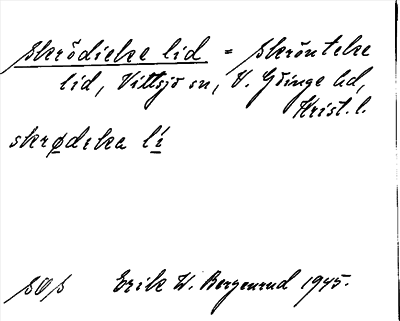 Skrödicke lid = Skröntcke
lid, Vittsjö sn, V. Göinge hd,
Krist. l.
skrødika lí
SOS Erik W. Bergenrud 1945.